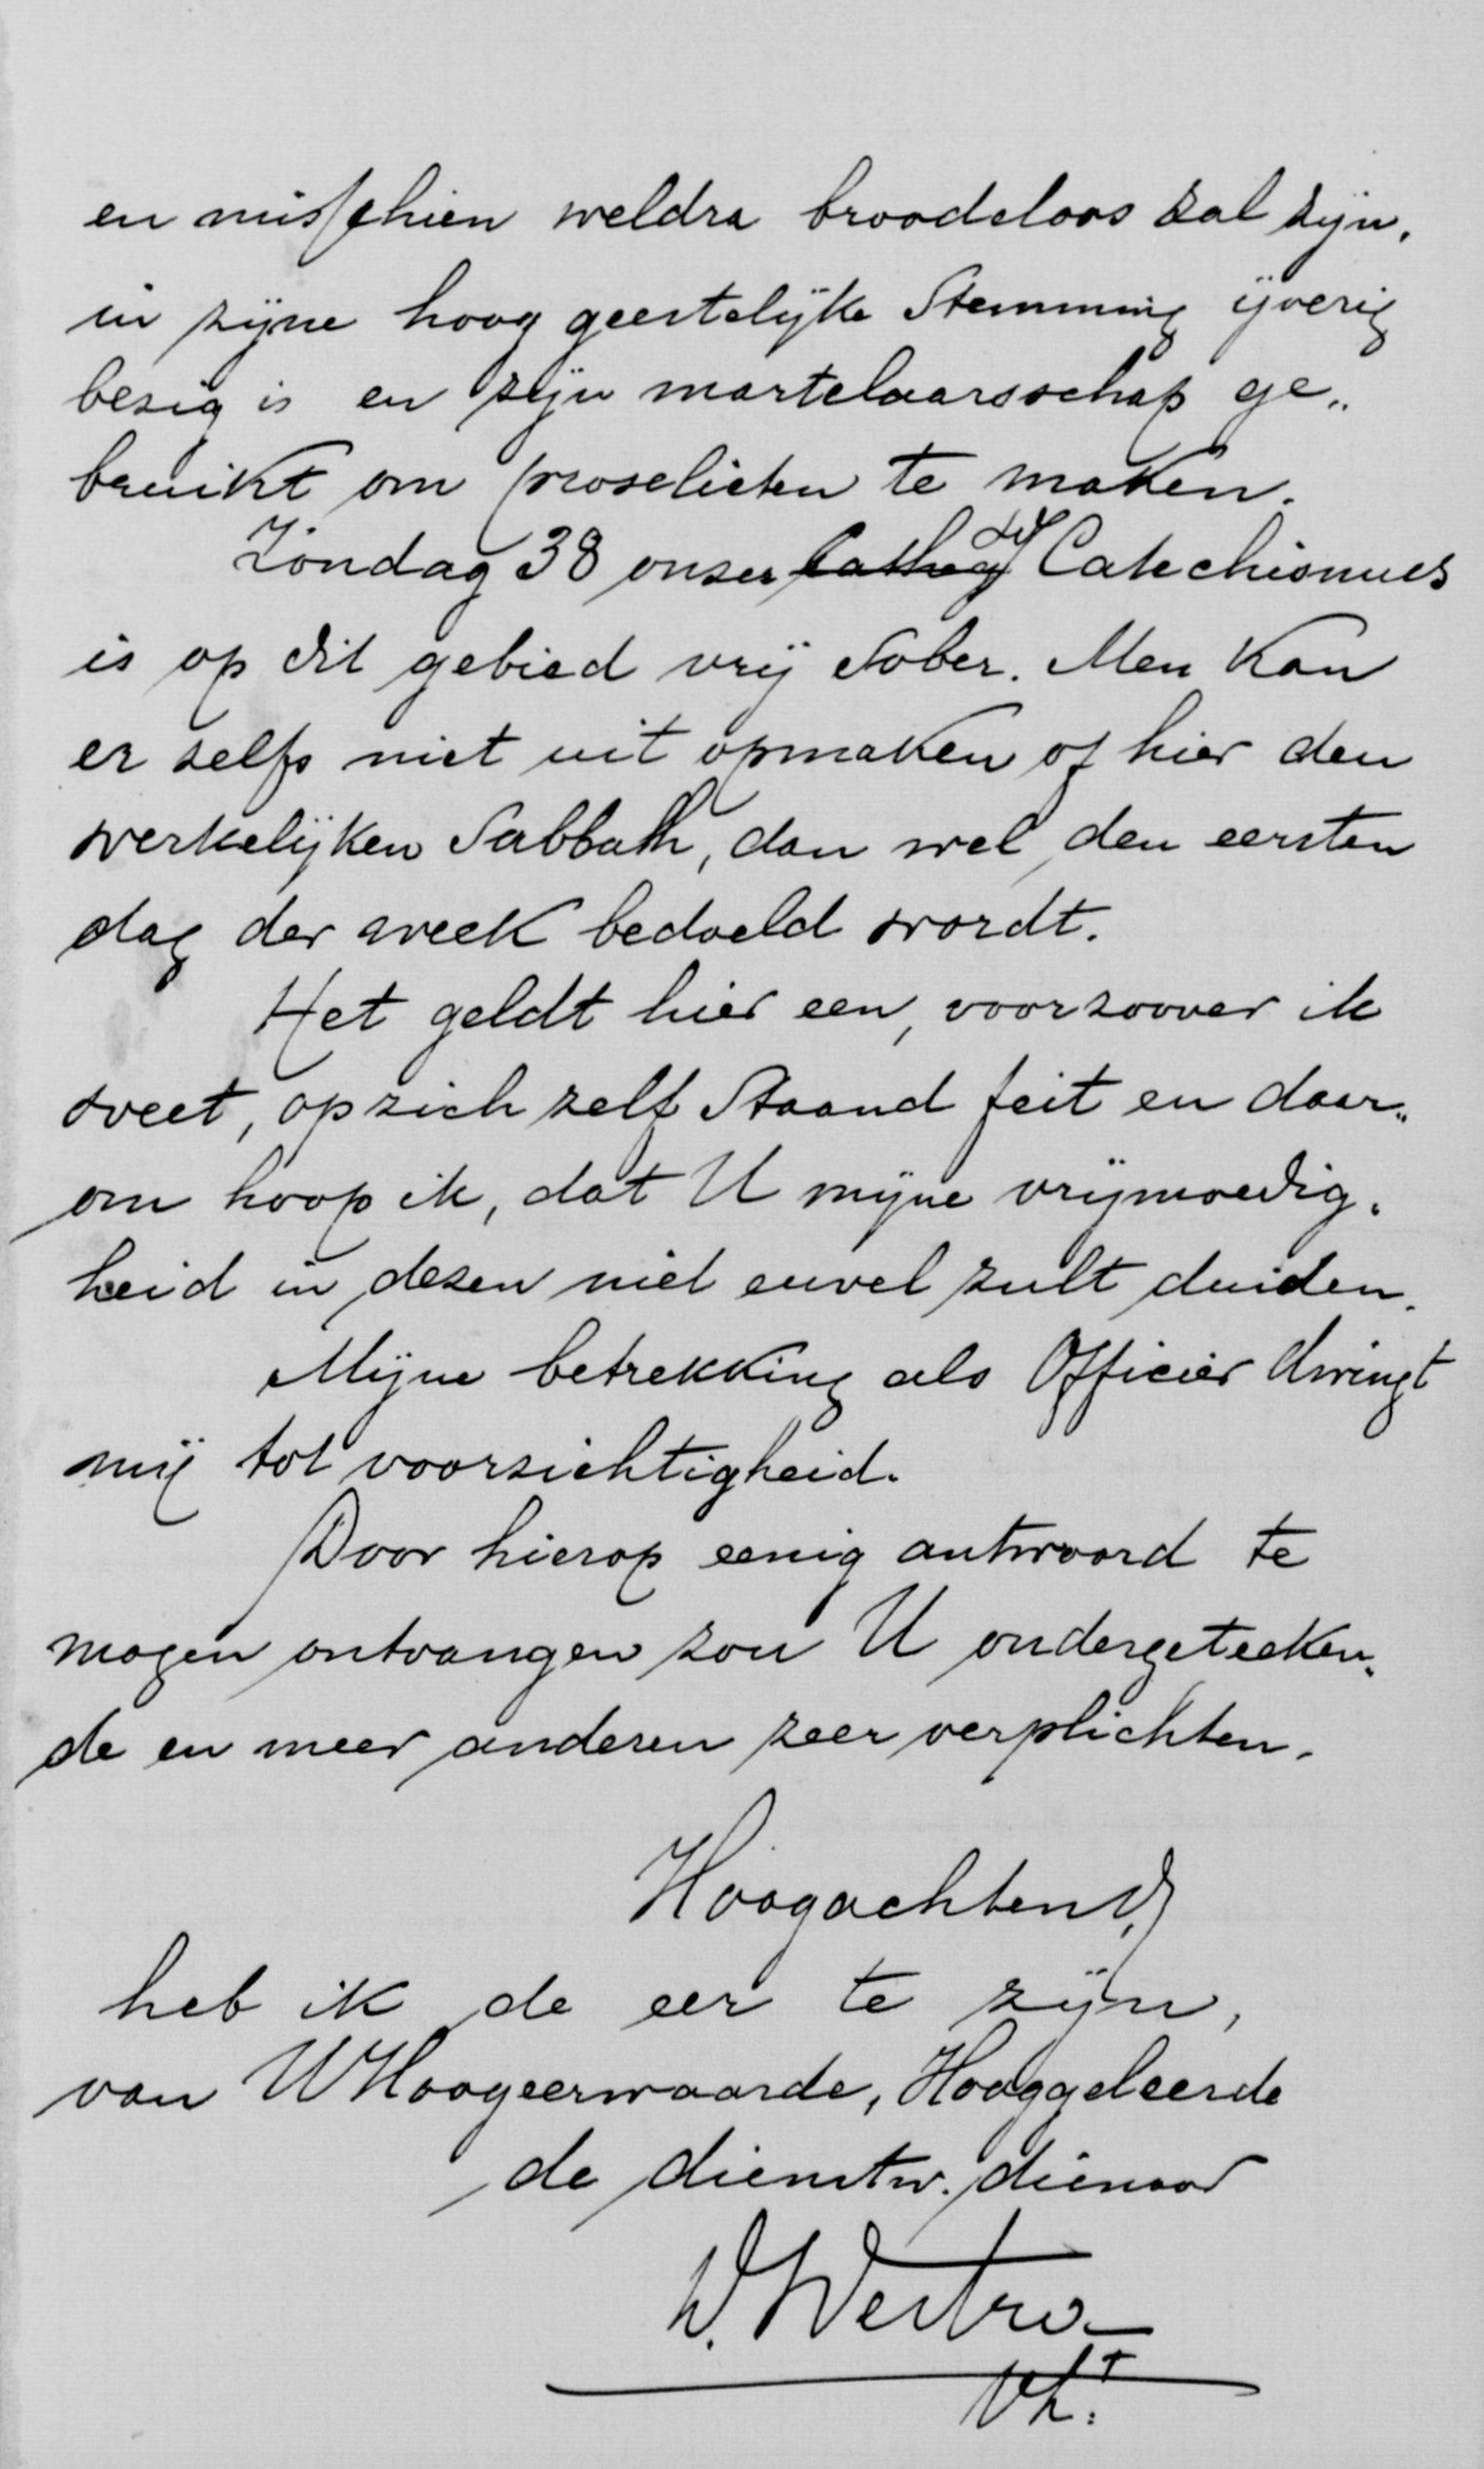 en misschien weldra broodeloos zal zijn,
in zijne hoog geestelijke Stemming ijverig
bezig is en zijn martelaarsschap ge„
bruikt om proselieten te maken.
Zondag 38 onzer Catechismus
is op dit gebied vrij sober. Men kan
er zelfs niet uit opmaken of hier den
werkelijken Sabbath, dan wel den eersten
dag der week bedoeld wordt.
Het geldt hier een, voorzoover ik
weet, op zich zelf Staand feit en daar„
om hoop ik, dat U mijne vrijmoedig„
heid in dezen niet euvel zult duiden.
Mijne betrekking als Officier dwingt
mij tot voorzichtigheid.
Door hierop eenig antwoord te
mogen ontvangen zou U ondergeteeken„
de en meer anderen zeer verplichten.
Hoogachtend,
heb ik de eer te zijn,
van UHoogeerwaarde, Hooggeleerde
de dienstw. dienaar
W. Westra